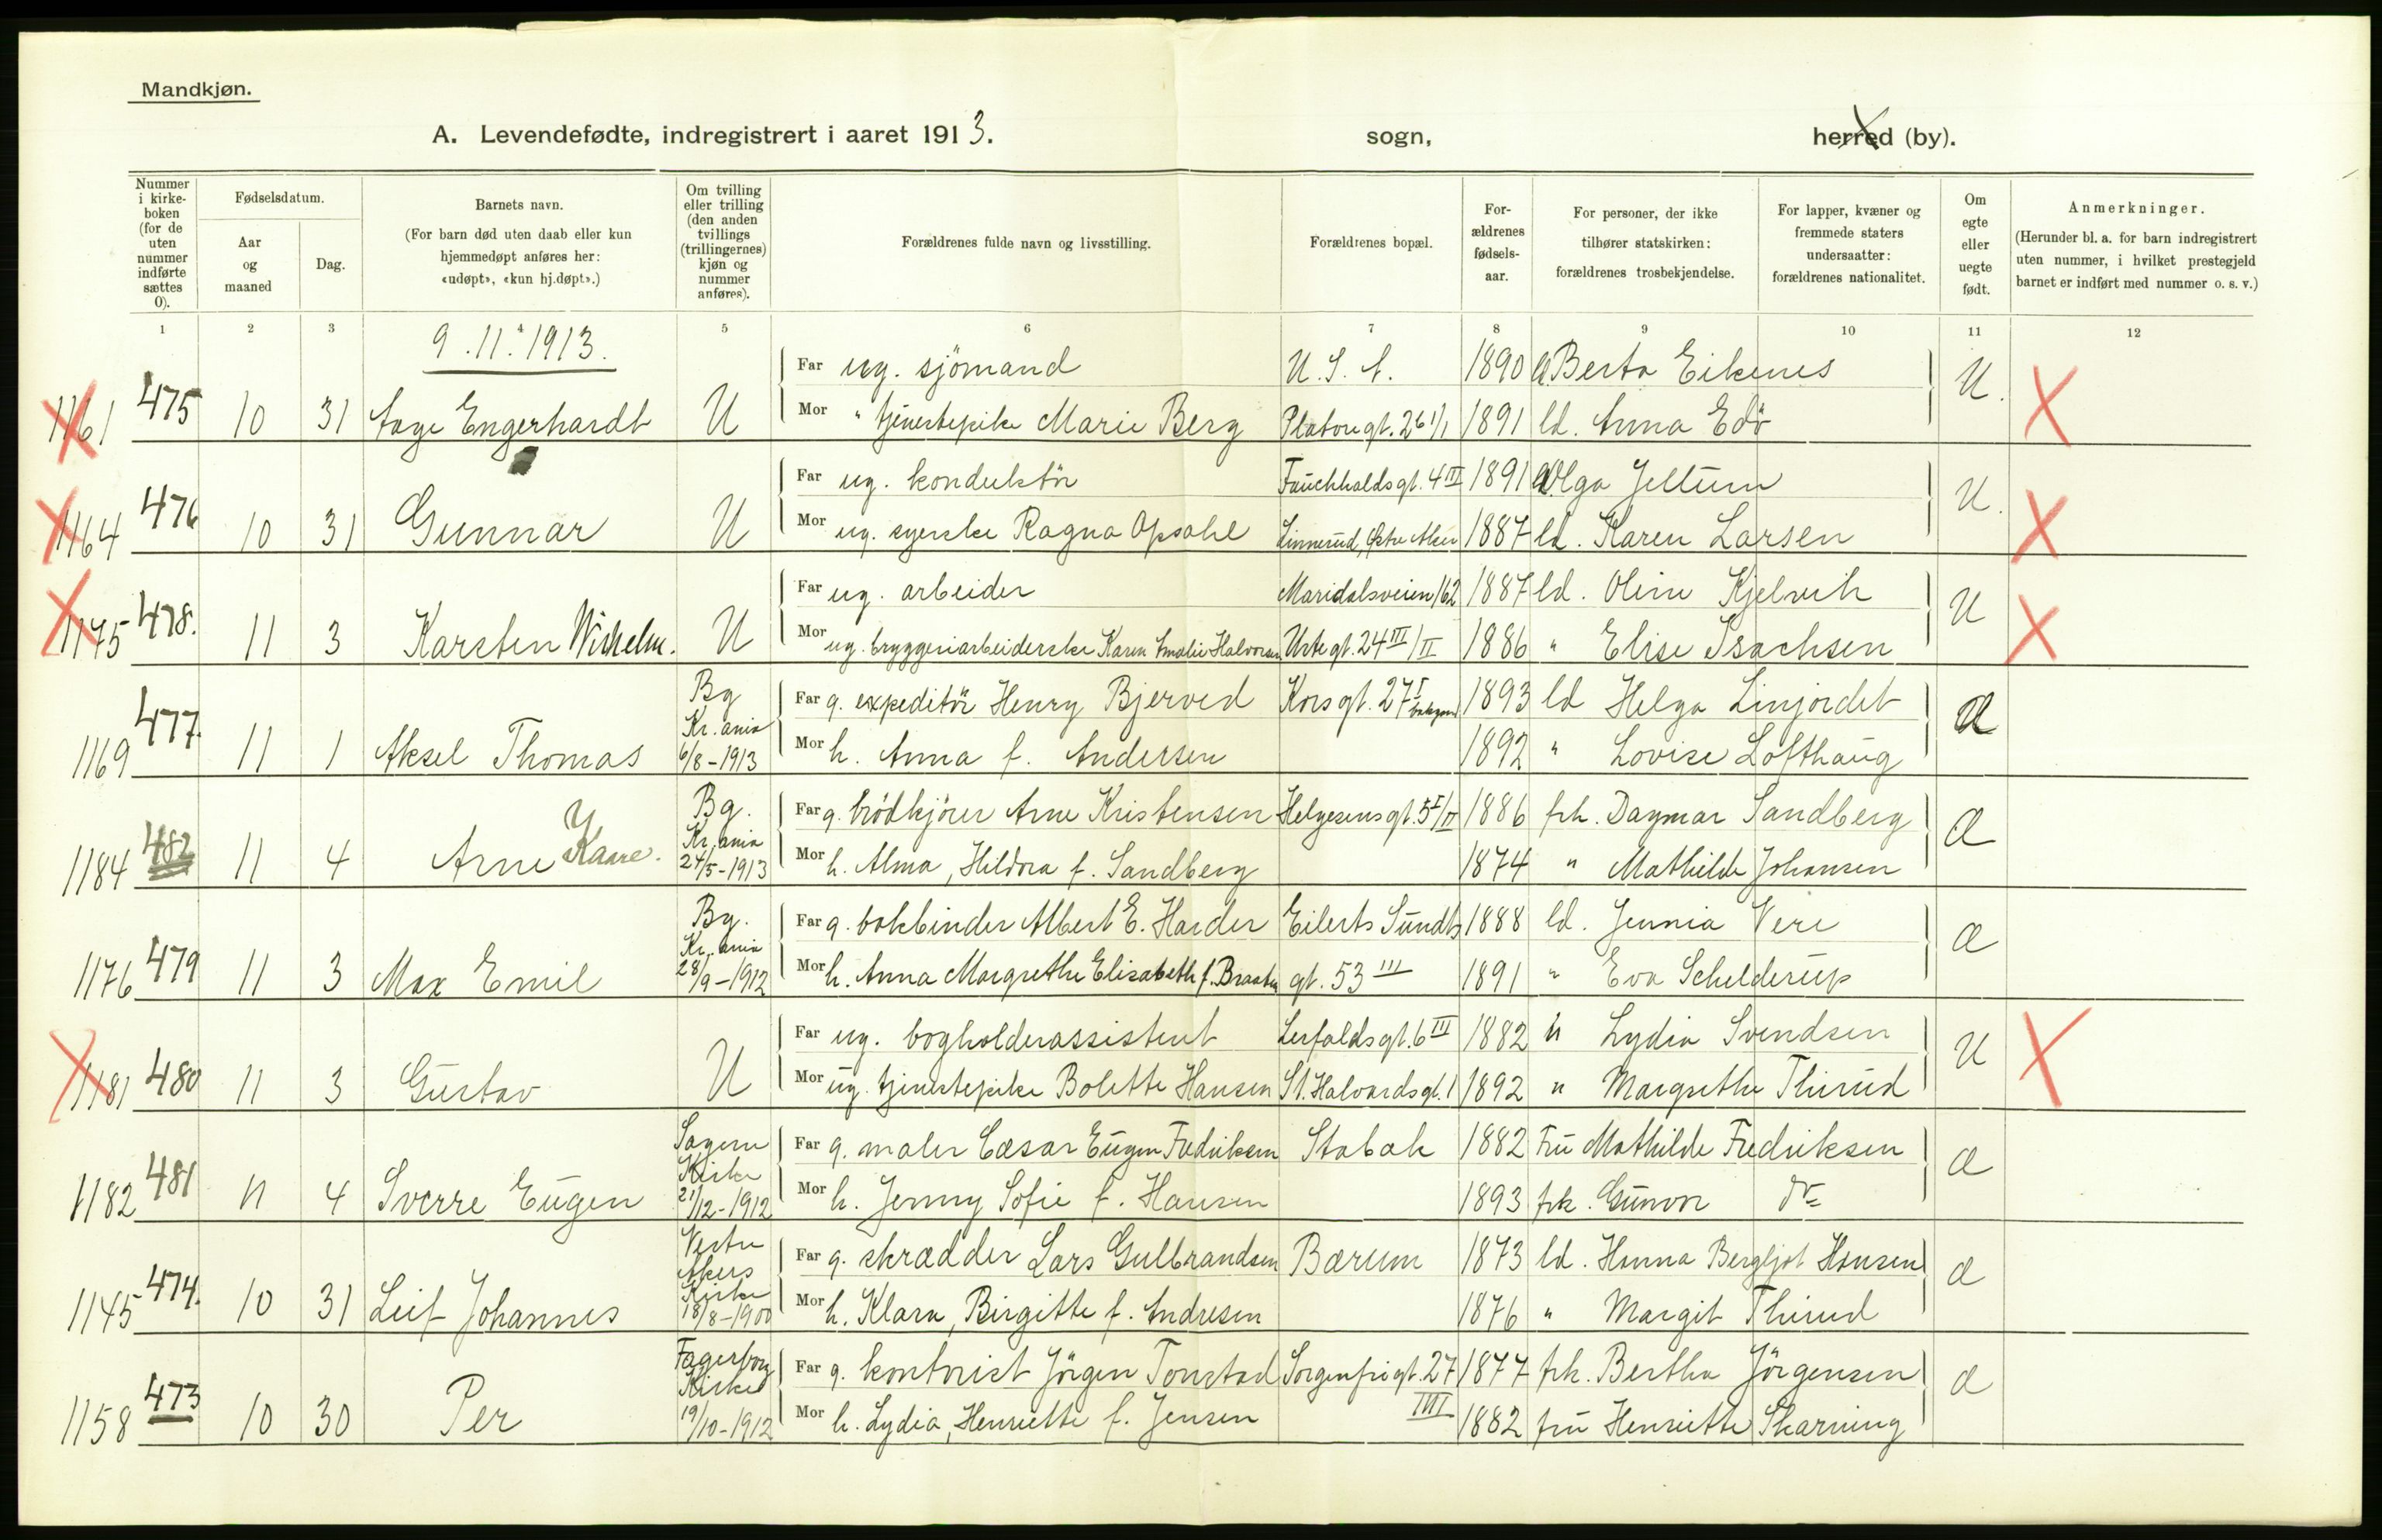 Mandkjøn.
A. Levendefødte, indregistrert i aaret 1913. sogn, herred (by).
Nummer i kirkeboken (for de uten nummer indførte sættes 0).
Fødselsdatum.
Aar og maaned
Dag.
Barnets navn.
(For barn død uten daab eller kun hjemmedøpt anføres her: «udøpt», «kun hj.døpt».)
Om tvilling eller trilling (den anden tvillings (trillingernes) kjøn og nummer anføres).
Forældrenes fulde navn og livsstilling.
Forældrenes bopæl.
Forældrenes fødselsaar.
For personer, der ikke tilhører statskirken: forældrenes trosbekjendelse.
For lapper, kvæner og fremmede staters undersaatter: forældrenes nationalitet.
Om egte eller uegte født.
Anmerkninger.
(Herunder bl. a. for barn indregistrert uten nummer, i hvilket prestegjeld barnet er indført med nummer o. s. v.)
1 2 3 4 5 6 7 8 9 10 11 12
9.11.1913.
Far ug. sjömand U.S.A. 1890 Berta Eikenes U.
1161 475 10 31 Aage Engerhardt U Mor " tjenestepike Marie Berg Platousgt. 26 1/1 1891 ld. Anna Edö
Far ug. konduktör Fauchhaldsgt. 4 III 1891 Olga Jellum U.
1164 476 10 31 Gunnar U Mor ug. syerske Ragna Opsahl Linnerud, Östre Aker 1887 ld. Karen Larsen
Far ug. arbeider Maridalsveien 162 1887 ld. Oline Kjelvik U
1175 478. 11 3 Karsten Wilhelm. U Mor ug. bryggeriarbeiderske Karen Amalie Halvorsen Urtegt. 24 III/II 1886 " Elise Isachsen
Bg Kr.ania 6/8-1913 Far g. expeditör Henry Bjerved Korsgt. 27 I 1893 ld Helga Linjordet
1169 477. 11 1 Aksel Thomas Mor h. Anna f. Andersen 1892 " Lovise Lofthaug
Bg. Kr.ania 24/5-1913 Far g. brödkjörer Arne Kristensen Helgesensgt. 5 I/II 1886 frk. Dagmar Sandberg
1184 482 11 4 Arne Kaare. Mor h. Alma, Hildora f. Sandberg 1874 " Mathilde Johansen
Bg. Kr.ania 28/9-1912 Far g. bokbinder Albert E. Harder Eilerts Sundts 1888 ld. Jennia Vere
1176 479 11 3 Max Emil Mor h. Anna Margrethe Elisabeth f. Braaten gt. 53 III 1891 " Eva Schelderup
Far ug. bogholderassistent Lerfaldsgt. 6 III 1882 " Lydia Svendsen U
1181 480 11 3 Gustav U Mor ug. tjenestepike Bolette Hansen St. Halvardsgt. 1 1892 " Margrethe Thirud
Sagene Kirke 21/12-1912 Far g. maler Cæsar Eugen Fredriksen Stabak 1882 Fru Mathilde Fredriksen
1182 481 11 4 Sverre Eugen Mor h. Jenny Sofie f. Hansen 1893 frk. Gunvor do
Vestre Akers Kirke 18/8-1900 Far g. skrædder Lars Gulbrandsen Bærum 1873 ld. Hanna Bergljot Hansen
1145 474. 10 31 Leif Johannes Mor h. Klara, Birgitte f. Andresen 1876 " Margit Thirud
Fagerborg Kirke 19/10-1912 Far g. kontorist Jörgen Tonstad Sorgenfrigt. 27 1877 frk. Bertha Jörgensen
1158 473 10 30 Per Mor h. Lydia, Henriette f. Jensen III 1882 fru Henriette Skarning